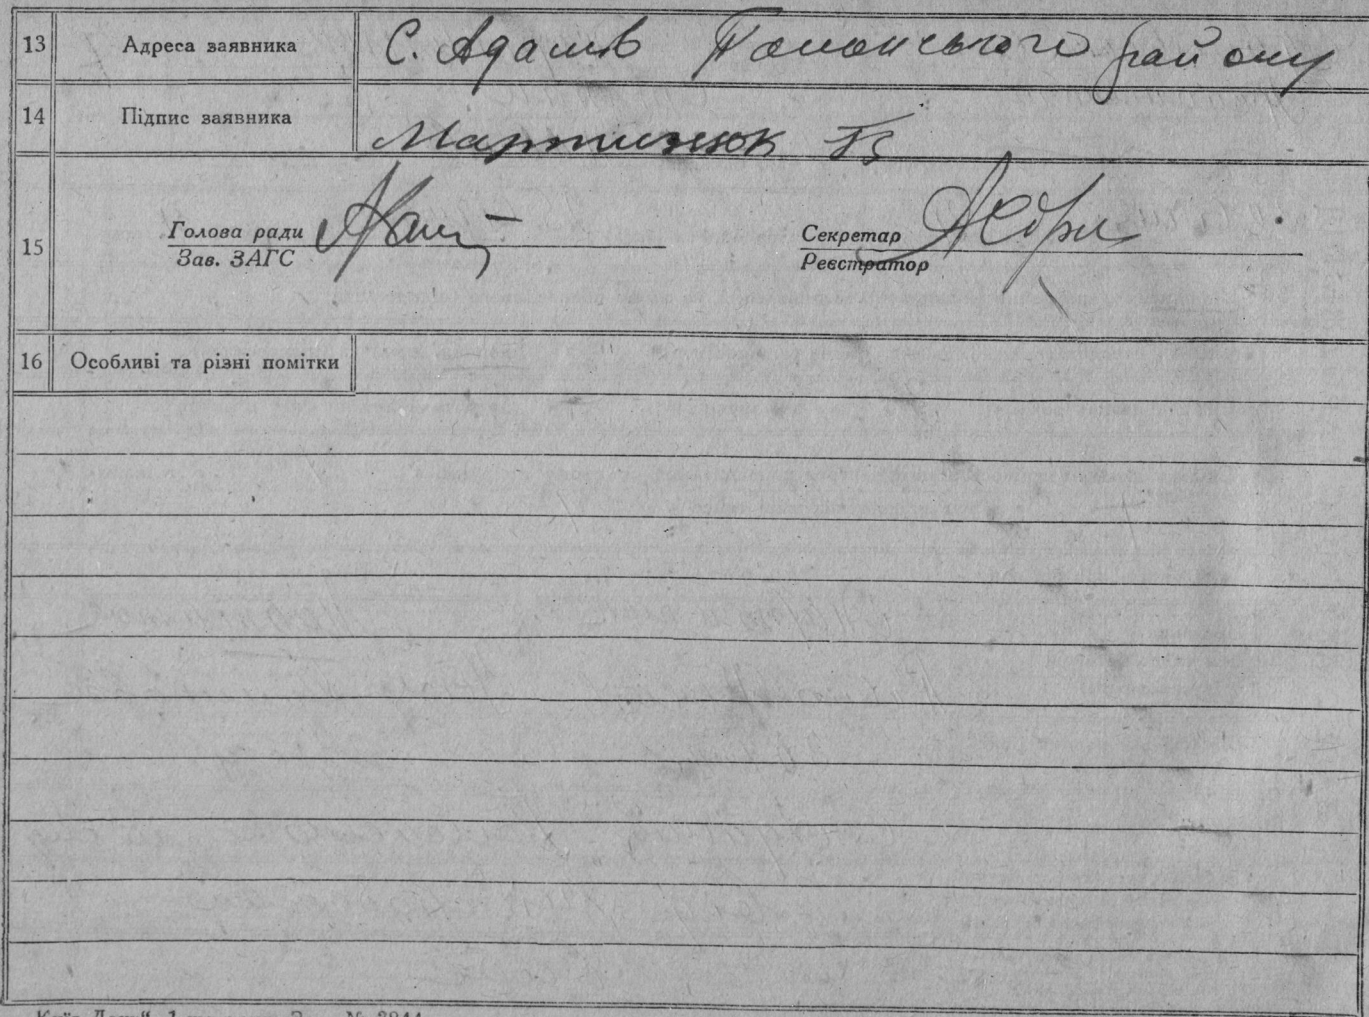 13 Адреса заявника С. Адамів Полонського району
14 Підпис заявника Мартинюк
15 Голова ради Секретар
Зав. ЗАГС Реєстратор
16 Особливі та різні помітки